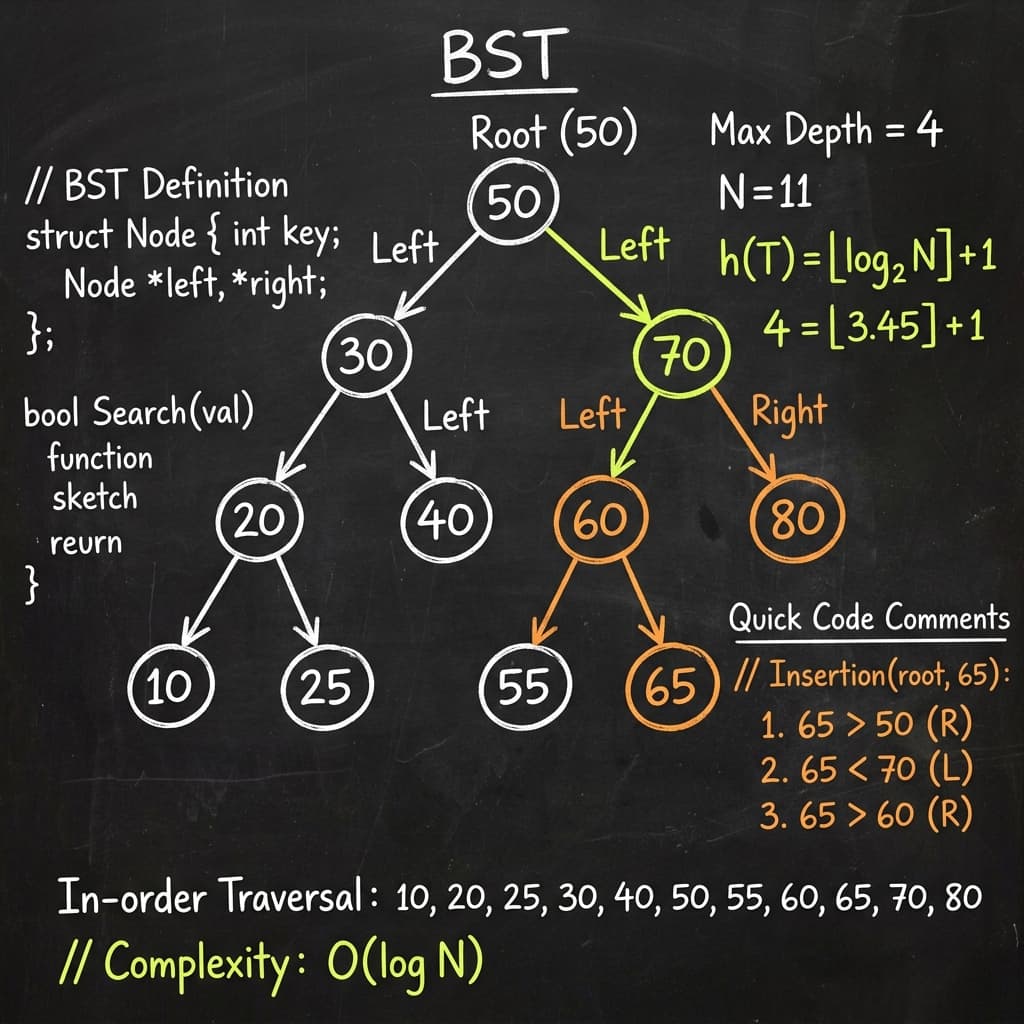 BST
Root (50)
50
Max Depth = 4
N=11
h(T)=⌊log₂N]+1
4=⌊3.45]+1
// BST Definition
struct Node { int key;
Node *left, *right;
};
Left
Left
30
70
bool Search(val)
function
sketch
reurn
}
Left
Left
Right
20
40
60
80
10
25
55
65
Quick Code Comments
// Insertion(root, 65):
1. 65 > 50 (R)
2. 65 < 70 (L)
3. 65 > 60 (R)
In-order Traversal: 10, 20, 25, 30, 40, 50, 55, 60, 65, 70, 80
// Complexity: O(log N)